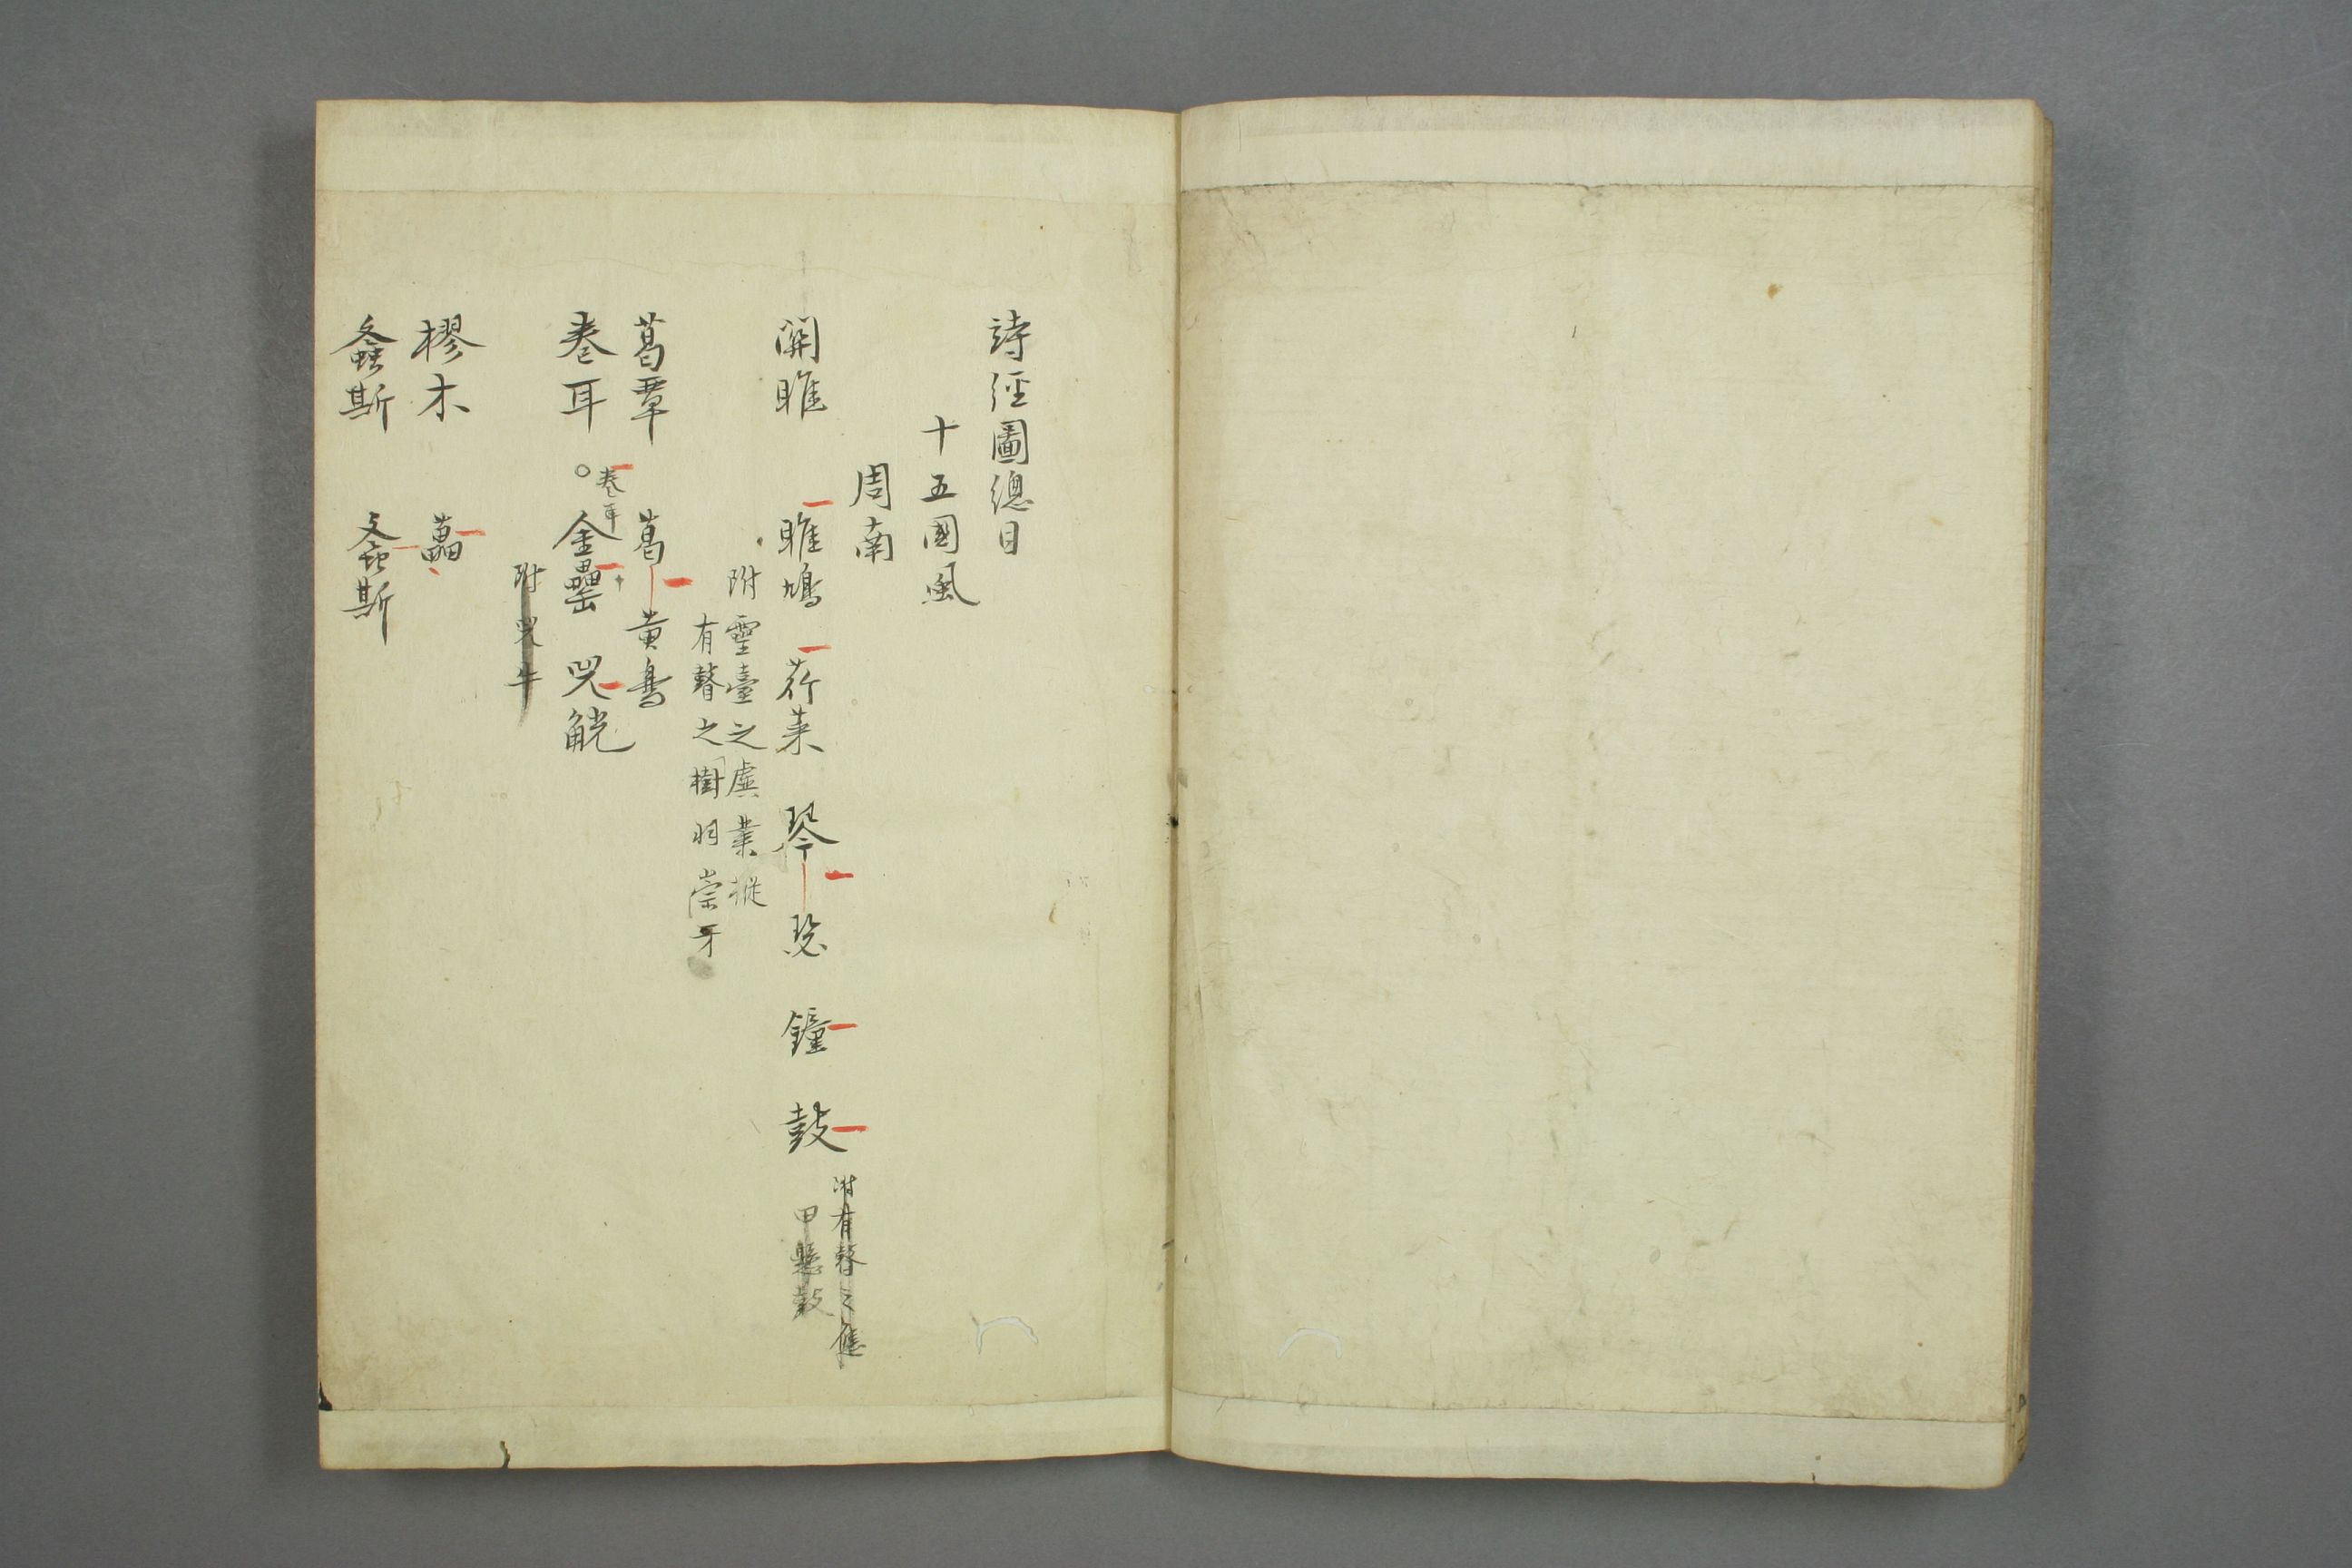 詩經圖總目
十五國風
周南
關雎 雎鳩 荇菜 琴 瑟 鐘 鼓
附有瞽之應
田懸鼓
附靈臺之虡業樅
有瞽之樹羽崇牙
葛覃 葛 黃鳥
卷耳 ○卷耳 金罍 兕觥
附兕牛
樛木 藟
螽斯 螽斯